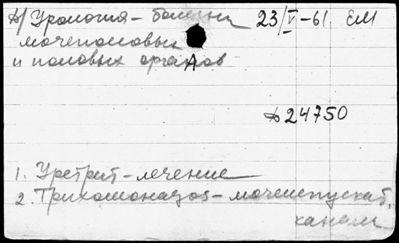 А/ Урология - болезни 23/V-61. ЕМ
мочеполовых
и половых органов
А 24750
1. Уретрит - лечение
2. Трихомонадоз - мочеиспускат.
канала